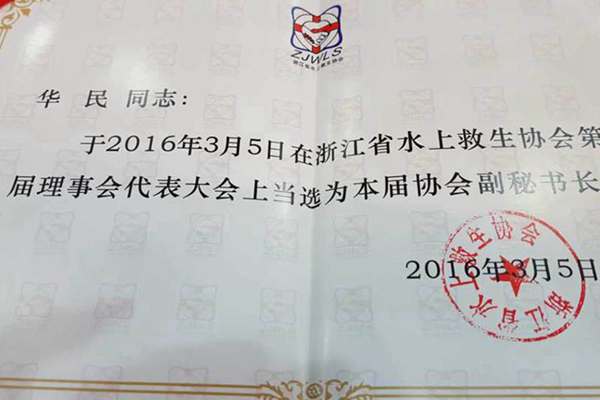 ZJWLS
浙江省水上救生协会
华 民 同志：
于2016年3月5日在浙江省水上救生协会第
届理事会代表大会上当选为本届协会副秘书长
2016年3月5日
浙江省水上救生协会